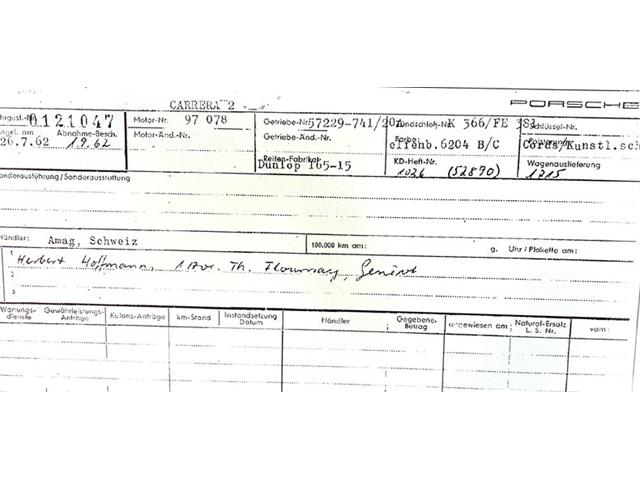 CARRERA 2
PORSCHE
0121047 Motor-Nr. 97 078 Getriebe-Nr. 57229-741/20A Zündschloß-Nr. K 366/FE 381 Schlüssel-Nr.
am Abnahme-Besch. Motor-Änd.-Nr. Getriebe-Änd.-Nr. Farbe
26.7.62 1.9.62 elfenb.6204 B/C Cords/Kunstl.sch
Reifen-Fabrikat KD-Heft-Nr. Wagenauslieferung
Dunlop 165-15 1026 (52870) 1315
onderausführung/Sonderausstattung
Händler: Amag, Schweiz 100.000 km am: g. Uhr/Plakette am:
1 Herbert Hoffmann, 1 Av. Th. Flournoy, Genève
2
3
Wartungs-dienste Gewährleistungs-Anträge Kulanz-Anträge km-Stand Instandsetzung Datum Händler Gegebene Betrag angewiesen am: Natural-Ersatz L. S. Nr. vom: